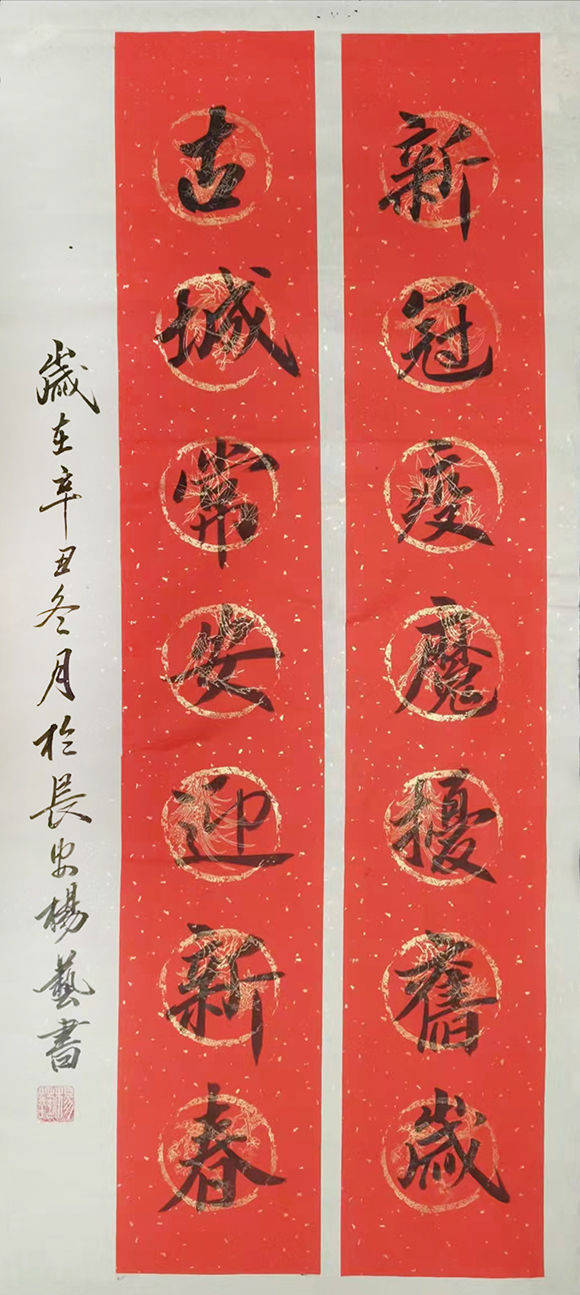 新冠疫魔擾舊歲
古城常安迎新春
歲在辛丑冬月於長安楊藝書